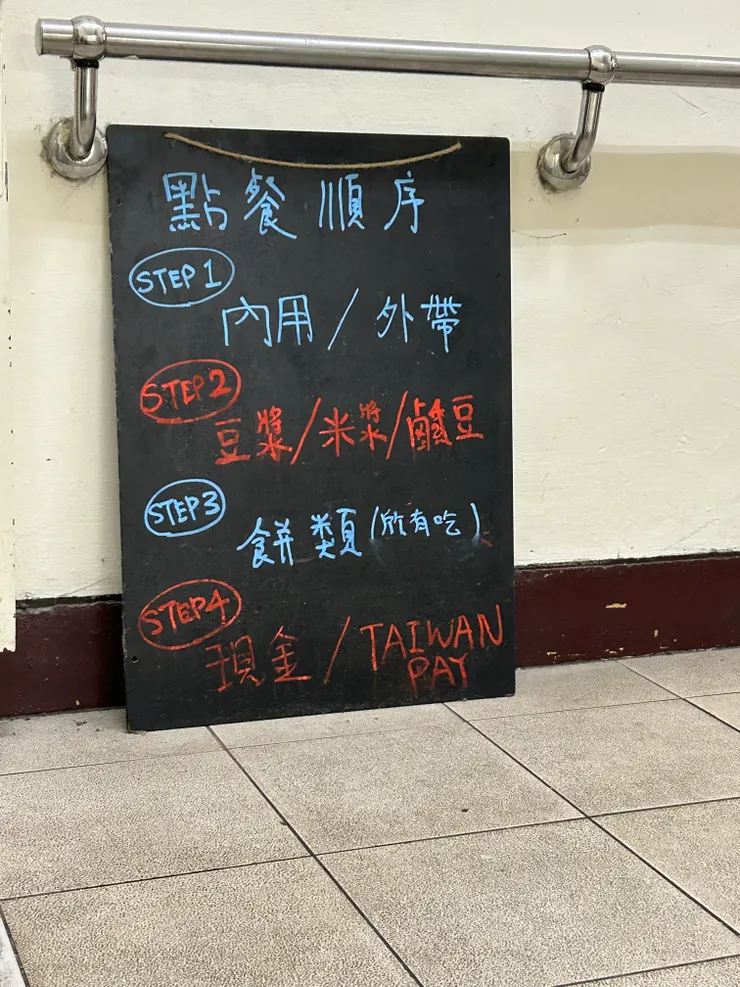 點餐順序
STEP 1
內用/外帶
STEP 2
豆漿/米漿/鹹豆
STEP 3
餅類(所有吃)
STEP 4
現金/TAIWAN
PAY